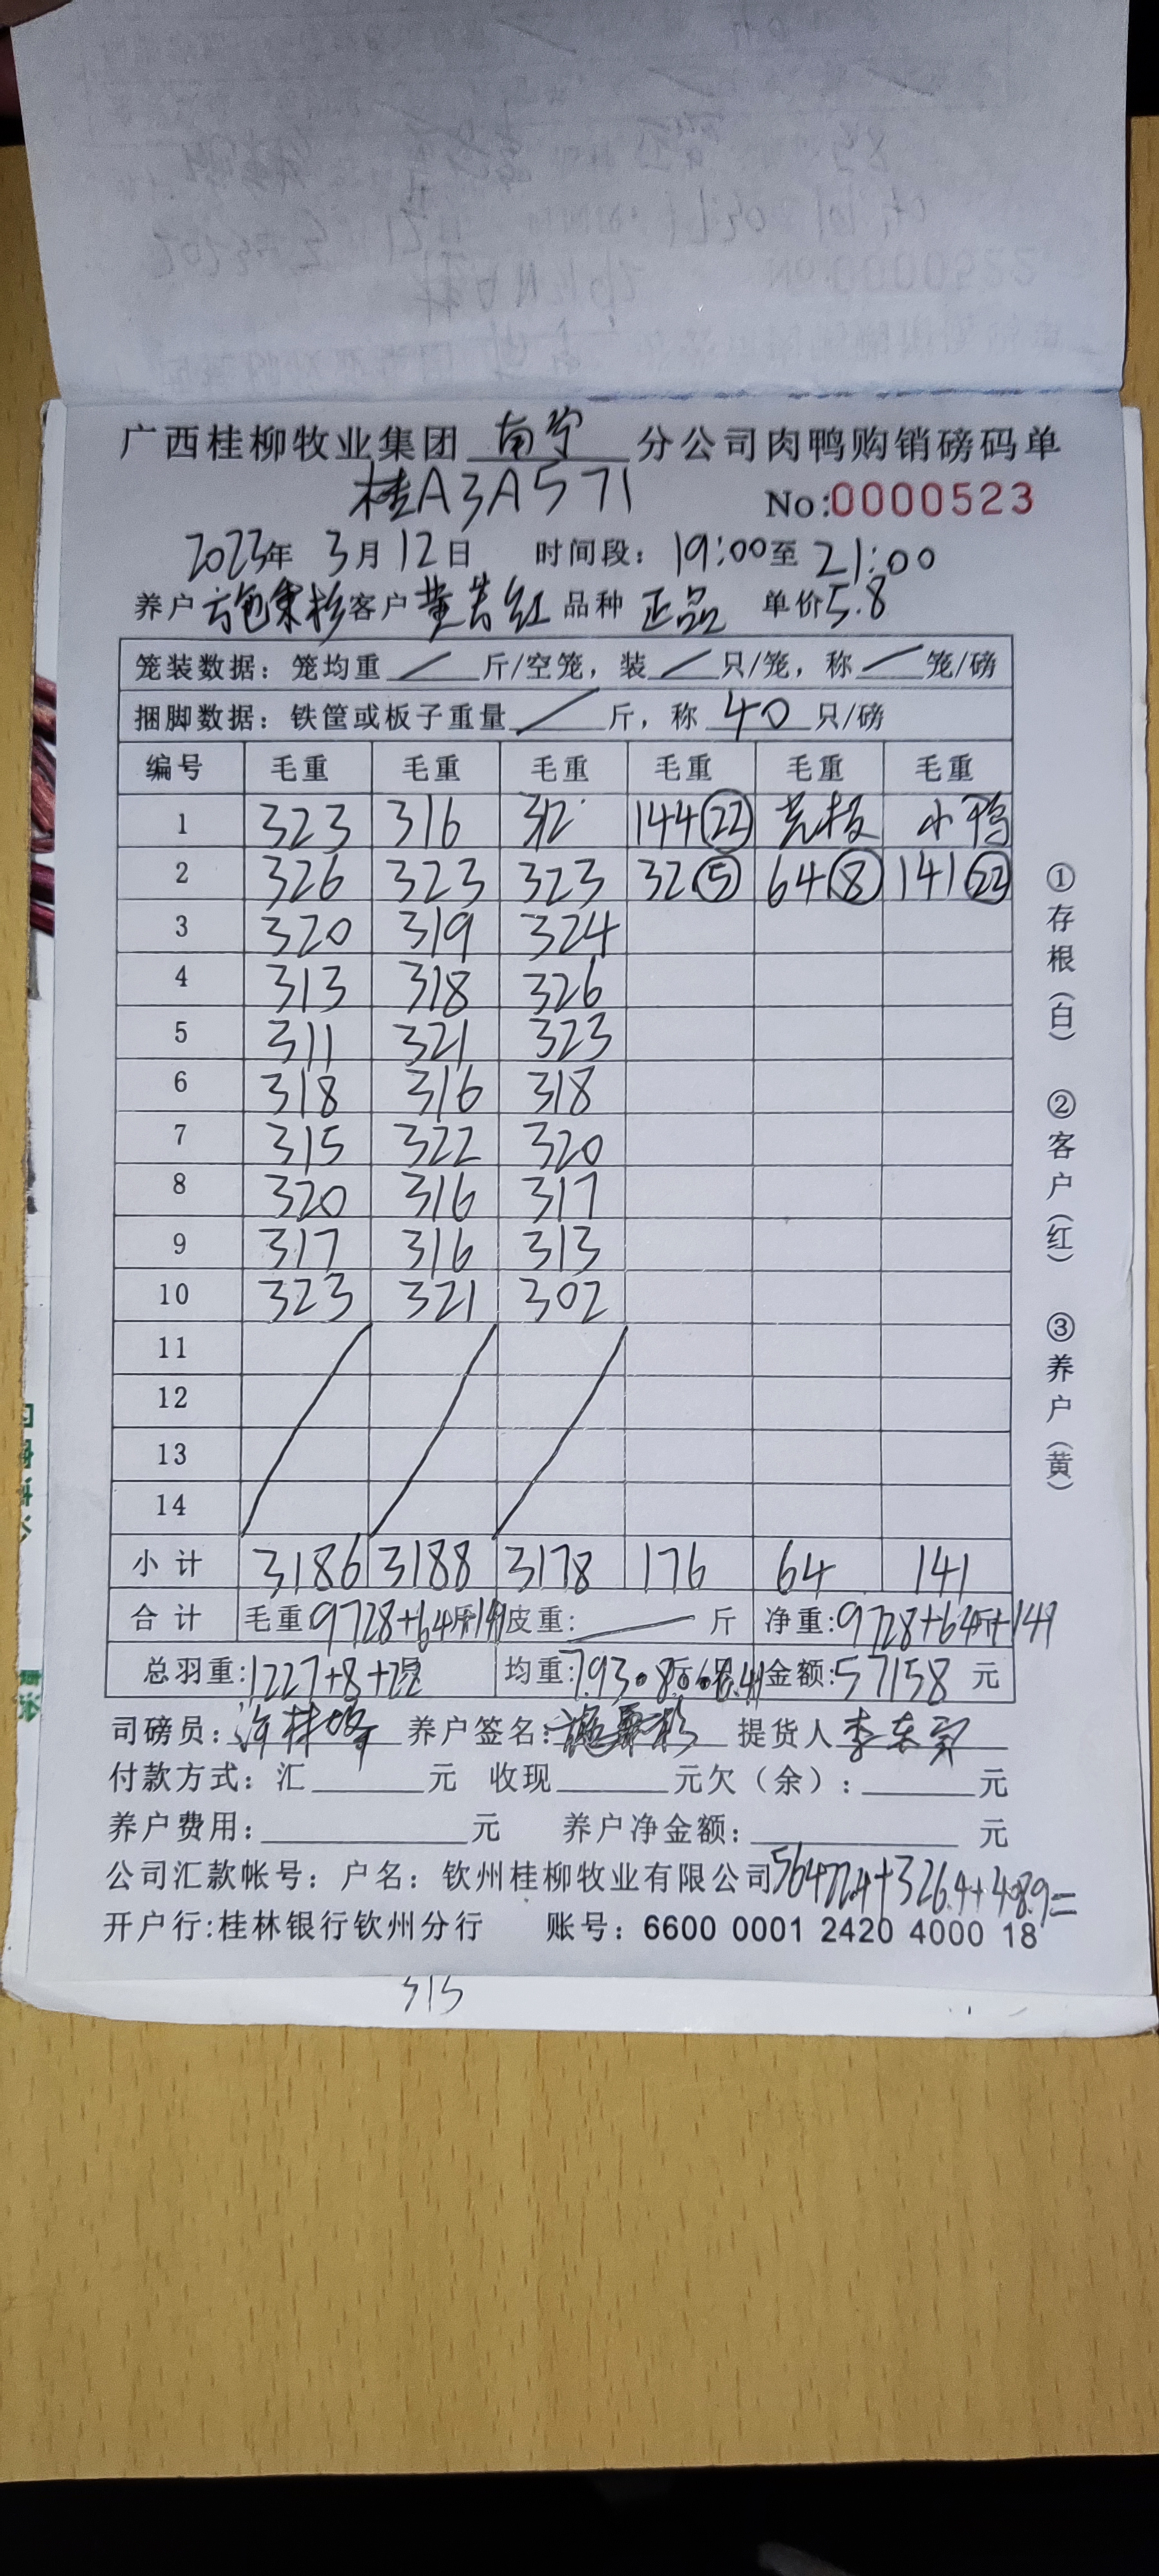 广西桂柳牧业集团 南宁 分公司肉鸭购销磅码单
桂A3A571 No:0000523
2023年 3月12日 时间段：19:00至21:00
养户 客户 黄 红 品种 正品 单价5.8
笼装数据：笼均重 / 斤/空笼，装 / 只/笼，称 / 笼/磅
捆脚数据：铁筐或板子重量 / 斤，称 40 只/磅
编号 毛重 毛重 毛重 毛重 毛重 毛重
1 323 316 312 144㉒ 小鸭
2 326 323 323 32⑤ 64⑧ 141㉒
3 320 319 324
4 313 318 326
5 311 321 323
6 318 316 318
7 315 322 320
8 320 316 317
9 317 316 313
10 323 321 302
11
12
13
14
小计 3186 3188 3178 176 64 141
合计 毛重9728+64斤+141 皮重： 斤 净重:9728+64斤+141
总羽重:1227+8+22 均重:7.93 金额:57158 元
司磅员： 养户签名： 提货人 李
付款方式：汇 元 收现 元欠（余）： 元
养户费用： 元 养户净金额： 元
公司汇款帐号：户名：钦州桂柳牧业有限公司 56422.4+326.4+408.9=
开户行:桂林银行钦州分行 账号：6600 0001 2420 4000 18
①存根（白） ②客户（红） ③养户（黄）
315